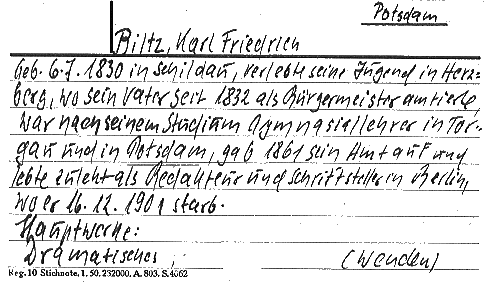 Potsdam
Biltz, Karl Friedrich
Geb. 6.7. 1830 in Schildau, verlebte seine Jugend in Herz-
berg, wo sein Vater seit 1832 als Bürgermeister amtierte,
war nach seinem Studium Gymnasiallehrer in Tor-
gau und in Potsdam, gab 1861 sein Amt auf und
lebte zuletzt als Redakteur und Schriftsteller in Berlin,
wo er 16. 12. 1901 starb.
Hauptwerke:
Dramatisches, (wenden)
Reg. 10 Stichnote. 1. 50. 232000. A. 803. S. 4062